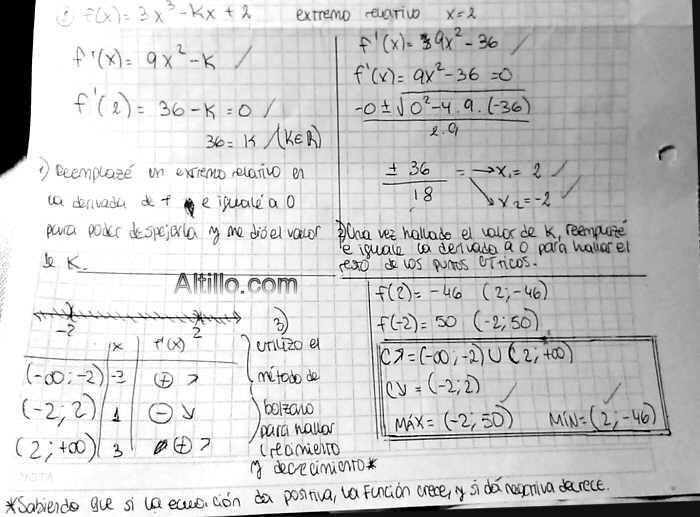 ① f(x) = 3x³ - Kx + 2 extremo relativo x=2
f'(x) = 9x² - K
f'(2) = 36 - K = 0
36 = K (K∈R)
1) Reemplazé un extremo relativo en
la derivada de f e igualé a 0
para poder despejarla y me dió el valor
de K.
f'(x) = 9x² - 36
f'(x) = 9x² - 36 = 0
-0 ± √0² - 4 . 9 . (-36)
2.9
± 36 = → x₁ = 2
18 x₂ = -2
2) Una vez hallado el valor de K, reemplazé
e iguale la derivada a 0 para hallar el
resto de los puntos críticos.
Altillo.com
-2 2
x f'(x)
(-∞; -2) -3 ⊕ ↗
(-2; 2) 1 ⊖ ↘
(2; +∞) 3 ⊕ ↗
3)
utilizo el
método de
bolzano
para hallar
crecimiento
y decrecimiento*
f(2) = -46 (2; -46)
f(-2) = 50 (-2; 50)
C↗ = (-∞; -2) ∪ (2; +∞)
C↘ = (-2; 2)
MÁX = (-2; 50) MÍN = (2; -46)
NOTA
*Sabiendo que si la ecuación da positiva, la función crece, y si dá negativa decrece.